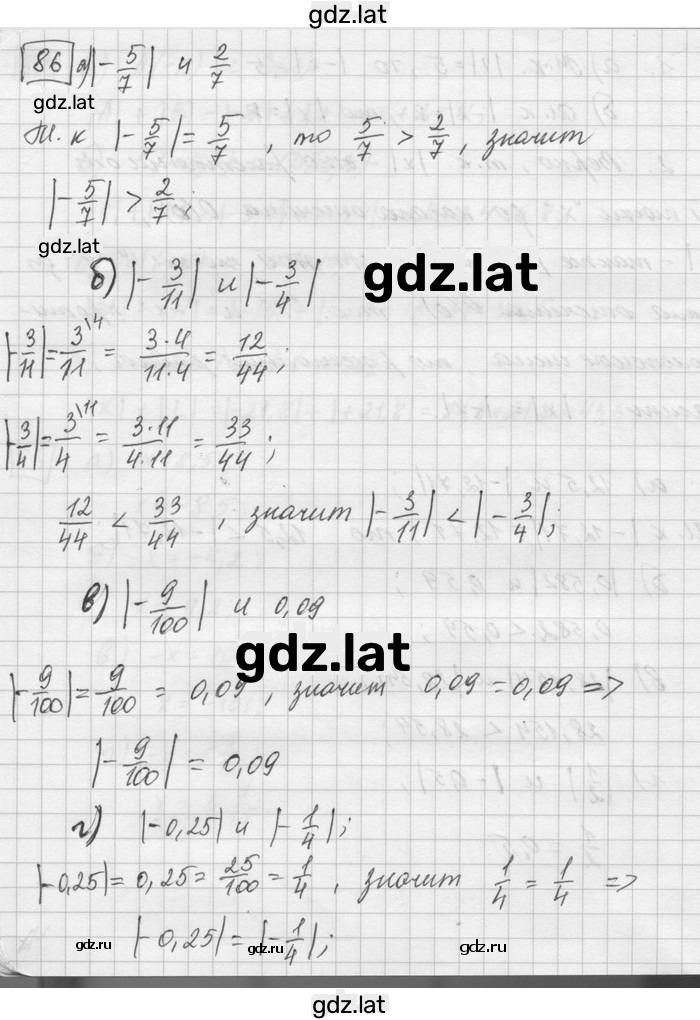 gdz.lat
86 а) |-5/7| и 2/7
gdz.lat
Т.к |-5/7| = 5/7, то 5/7 > 2/7, значит
|-5/7| > 2/7;
gdz.lat
б) |-3/11| и |-3/4|
gdz.lat
|-3/11| = 3\4/11 = 3·4/11·4 = 12/44;
|-3/4| = 3\11/4 = 3·11/4·11 = 33/44;
12/44 < 33/44, значит |-3/11| < |-3/4|;
в) |-9/100| и 0,09
gdz.lat
|-9/100| = 9/100 = 0,09, значит 0,09 = 0,09 =>
|-9/100| = 0,09
г) |-0,25| и |-1/4|;
|-0,25| = 0,25 = 25/100 = 1/4, значит 1/4 = 1/4 =>
|-0,25| = |-1/4|;
gdz.ru
gdz.ru
gdz.ru
gdz.lat